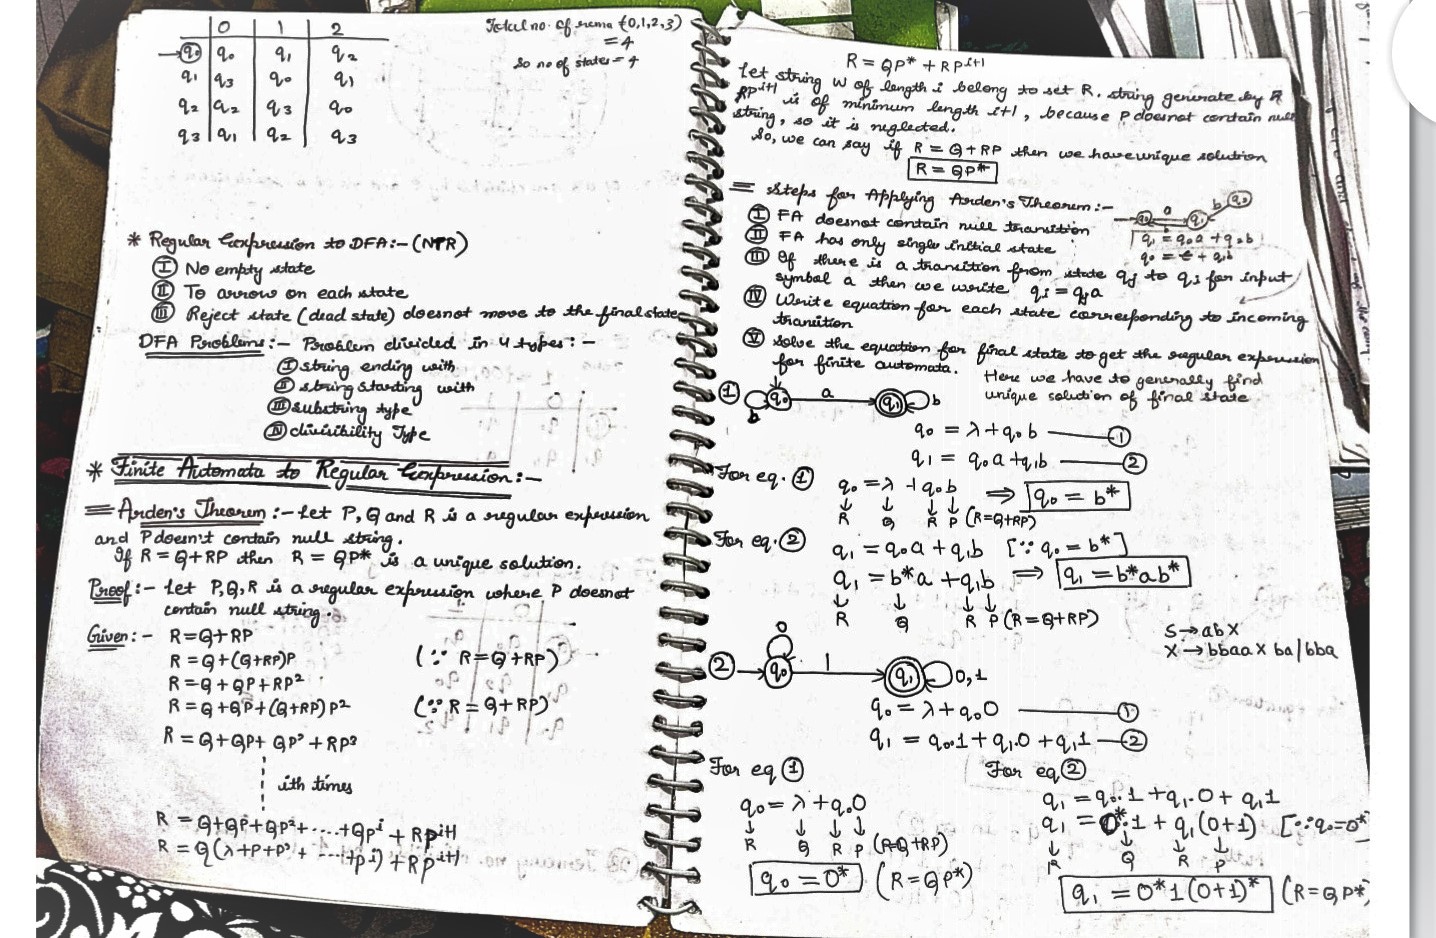 0 1 2
→q0 q0 q1 q2
q1 q3 q0 q1
q2 q2 q3 q0
q3 q1 q2 q3
Total no. of rema {0,1,2,3}
= 4
So no of states = 4
* Regular Expression to DFA:- (NTR)
I No empty state
II To arrow on each state
III Reject state (dead state) doesnot move to the final state
DFA Problems:- Problem divided in 4 types:-
I string ending with
II string starting with
III substring type
IV divisibility Type
* Finite Automata to Regular Expression:-
= Arden's Theorem:- Let P, Q and R is a regular expression
and P doesn't contain null string.
If R = Q+RP then R = QP* is a unique solution.
Proof:- Let P,Q,R is a regular expression where P doesnot
contain null string.
Given:- R=Q+RP
R = Q+(Q+RP)P (∵ R=Q+RP)
R = Q+QP+RP²
R = Q+QP+(Q+RP)P² (∵ R = Q+RP)
R = Q+QP+ QP² +RP³
ith times
R = Q+QP+QP²+....+QPⁱ + RPⁱ⁺¹
R = Q(λ+P+P²+ ....+Pⁱ)+RPⁱ⁺¹
R = QP* + RPⁱ⁺¹
Let string W of length i belong to set R. string generate by R
RPⁱ⁺¹ is of minimum length i+1, because P doesnot contain null
string, so it is neglected.
So, we can say if R = Q+RP then we have unique solution
R = QP*
= Steps for Applying Arden's Theorem:-
I FA doesnot contain null transition
II FA has only single initial state
q0 a q1 b q2
b
q1 = q0a + q2b
q0 = ε + q1b
III If there is a transition from state qj to qi for input
symbol a then we write qi = qja
IV Write equation for each state corresponding to incoming
tranition
V Solve the equation for final state to get the regular expression
for finite automata. Here we have to generally find
unique solution of final state
1 q0 a q1 b
b
q0 = λ+q0b — 1
q1 = q0a +q1b — 2
For eq. 1 q0 = λ +q0b ⇒ q0 = b*
↓ ↓ ↓ ↓
R Q R P (R=Q+RP)
For eq. 2 q1 = q0a + q1b [∵ q0 = b*]
q1 = b*a +q1b ⇒ q1 = b*ab*
↓ ↓ ↓ ↓
R Q R P (R=Q+RP)
S→abX
X→bbaaXba/bba
0
2 → q0 1 q1 0,1
q0 = λ+q0 0 — 1
q1 = q0.1+q1.0 +q1.1 — 2
For eq 1
q0 = λ +q0.0
↓ ↓ ↓ ↓
R Q R P (R=Q+RP)
q0 = 0* (R=QP*)
For eq 2
q1 = q0.1 +q1.0 + q1.1
q1 = 0*.1 + q1(0+1) [∵q0=0*
↓ ↓ ↓ ↓
R Q R P
q1 = 0*1(0+1)* (R=QP*)